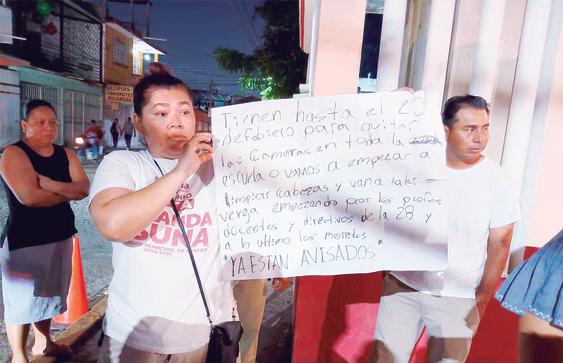 COPIAS
ABARROTES
BOLANGAS
Tienen hasta el 20
de fabsero para quitar
las Camaras en toda la
escuela o vamos a empezar a
limpiar cabezas y van a valer
verga empezando por los profes
docentes y directivos de la 28 y
a lo ultimo los mocretes
"YA ESTAN AVISADOS"
ANDA
SUNA